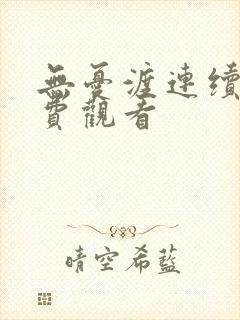 無憂渡連續
費觀看
晴空希藍